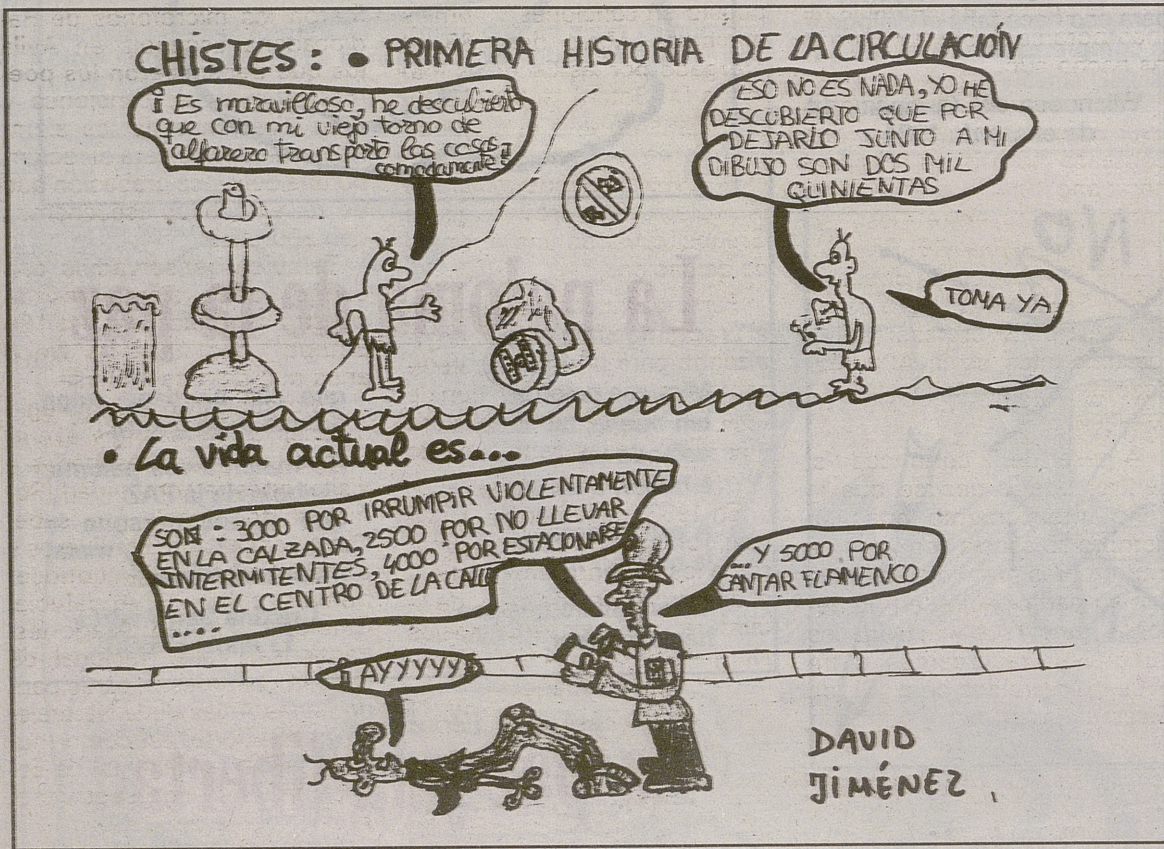 CHISTES: • PRIMERA HISTORIA DE LA CIRCULACIÓN
¡Es maravilloso, he descubierto
que con mi viejo torno de
alfarero transporto las cosas
comodamente!
ESO NO ES NADA, YO HE
DESCUBIERTO QUE POR
DEJARLO JUNTO A MI
DIBUJO SON DOS MIL
QUINIENTAS
TOMA YA
• La vida actual es...
SON: 3000 POR IRRUMPIR VIOLENTAMENTE
EN LA CALZADA, 2500 POR NO LLEVAR
INTERMITENTES, 4000 POR ESTACIONARSE
EN EL CENTRO DE LA CALLE
....
...Y 5000 POR
CANTAR FLAMENCO
¡AYYYYY!
DAVID
JIMÉNEZ.
NO